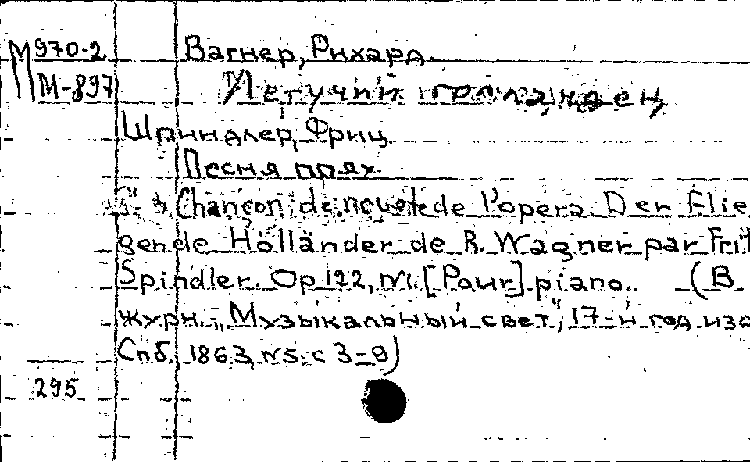 М970-2 Вагнер, Рихард.
М-897 Летучий голландец
Шпиндлер, Фриц
Песня прях.
Chançon de rouet de l'opera Der Flie-
gende Holländer de R. Wagner par Frit
Spindler. Op 122, N1. [Pour] piano. (В
журн. „Музыкальный свет", 17-й год изд
Спб, 1863, N5, с 3-9)
295